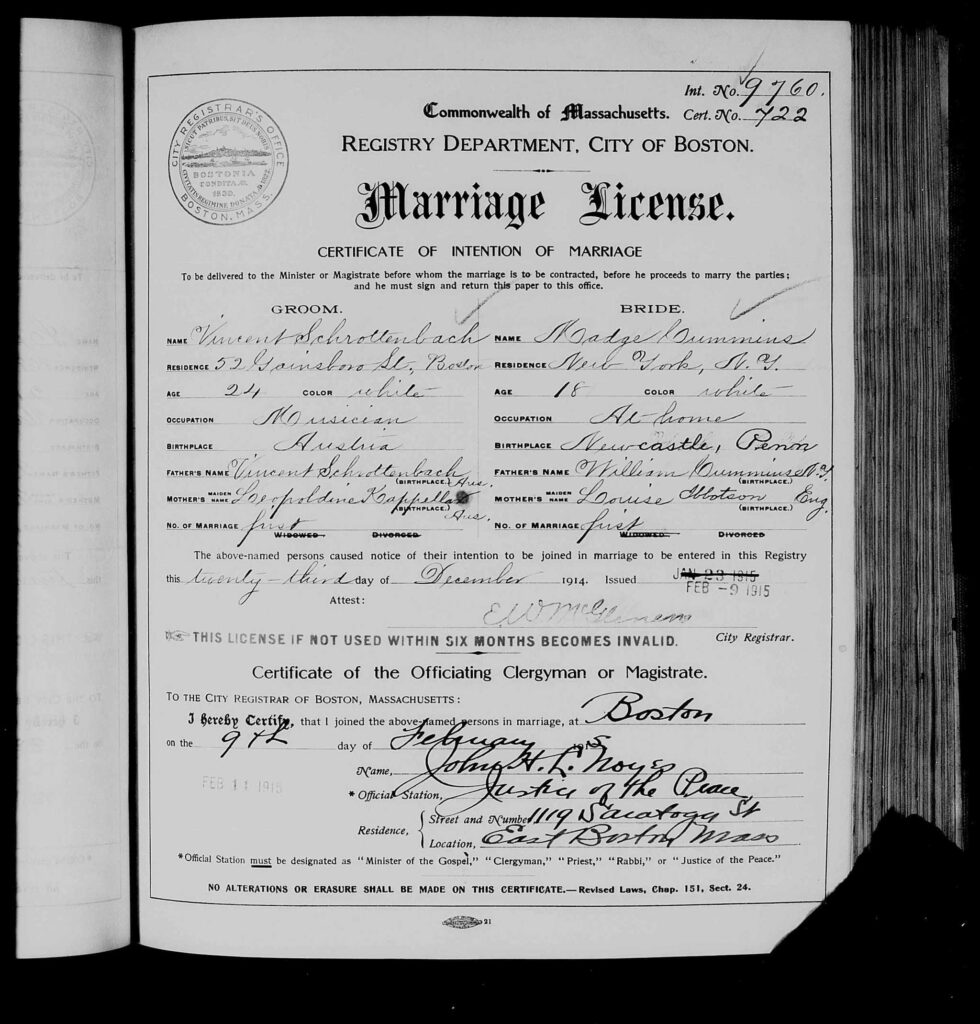 Int. No. 9760.
Commonwealth of Massachusetts. Cert. No. 722
REGISTRY DEPARTMENT, CITY OF BOSTON.
CITY REGISTRAR'S OFFICE
BOSTON, MASS.
SICUT PATRIBUS SIT DEUS NOBIS
BOSTONIA
CONDITA, AD.
1630.
CIVITATIS REGIMINE DONATA AD 1822
Marriage License.
CERTIFICATE OF INTENTION OF MARRIAGE
To be delivered to the Minister or Magistrate before whom the marriage is to be contracted, before he proceeds to marry the parties;
and he must sign and return this paper to this office.
GROOM. BRIDE.
NAME Vincent Schrottenbach NAME Madge Cummins
RESIDENCE 52 Gainsboro St., Boston RESIDENCE New York, N.Y.
AGE 24 COLOR white AGE 18 COLOR white
OCCUPATION Musician OCCUPATION At home
BIRTHPLACE Austria BIRTHPLACE Newcastle, Penn
FATHER'S NAME Vincent Schrottenbach Aus. FATHER'S NAME William Cummins N.Y.
(BIRTHPLACE.) (BIRTHPLACE.)
MOTHER'S MAIDEN NAME Leopoldine Kappella Aus. MOTHER'S MAIDEN NAME Louise Ibbotson Eng.
(BIRTHPLACE.) (BIRTHPLACE.)
NO. OF MARRIAGE first NO. OF MARRIAGE first
WIDOWED. DIVORCED WIDOWED. DIVORCED
The above-named persons caused notice of their intention to be joined in marriage to be entered in this Registry
this twenty-third day of December 1914. Issued JAN 23 1915
FEB -9 1915
Attest:
E.W. McGlenen
THIS LICENSE IF NOT USED WITHIN SIX MONTHS BECOMES INVALID. City Registrar.
Certificate of the Officiating Clergyman or Magistrate.
TO THE CITY REGISTRAR OF BOSTON, MASSACHUSETTS:
I hereby Certify, that I joined the above-named persons in marriage, at Boston
on the 9th day of February 1915
Name, John H. L. Noyes
FEB 11 1915
*Official Station, Justice of the Peace
Residence, { Street and Number 1119 Saratoga St
Location, East Boston Mass
*Official Station must be designated as "Minister of the Gospel," "Clergyman," "Priest," "Rabbi," or "Justice of the Peace."
NO ALTERATIONS OR ERASURE SHALL BE MADE ON THIS CERTIFICATE.—Revised Laws, Chap. 151, Sect. 24.
21